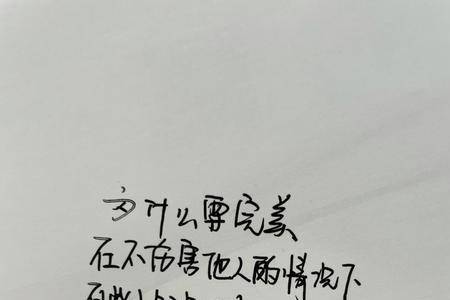 为什么要完美
在不伤害他人的情况下